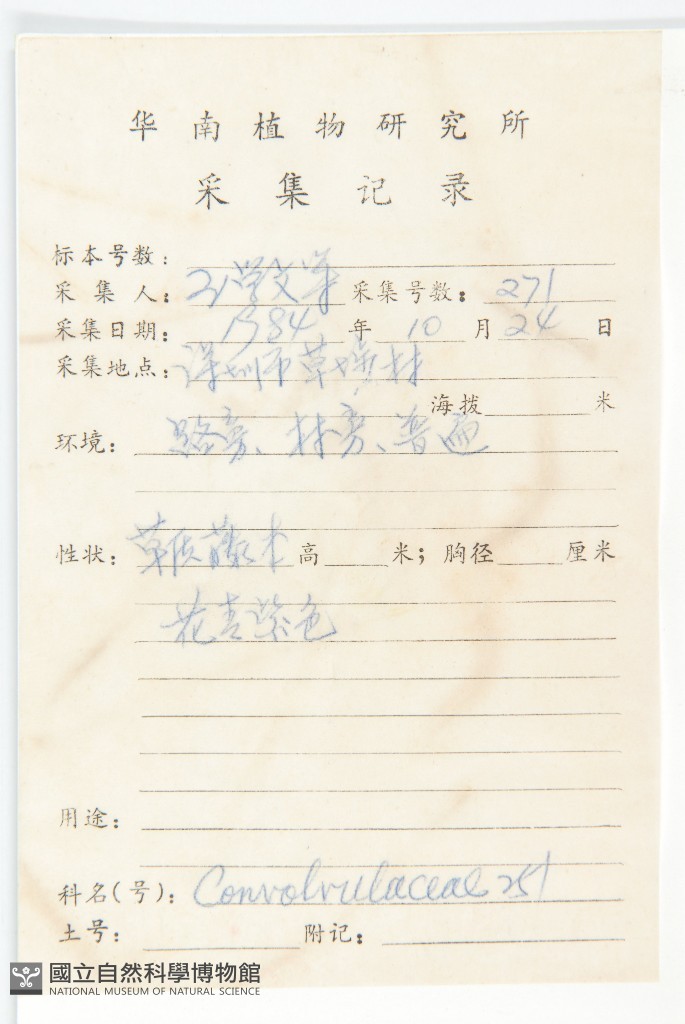 华南植物研究所
采集记录
标本号数:
采集人: 采集号数: 271
采集日期: 1984 年 10 月 24 日
采集地点: 深圳市草埔林
海拨 米
环境: 路旁、林旁、普遍
性状: 草质藤本 高 米; 胸径 厘米
花青紫色
用途:
科名(号): Convolvulaceae 251
土号: 附记:
國立自然科學博物館
NATIONAL MUSEUM OF NATURAL SCIENCE